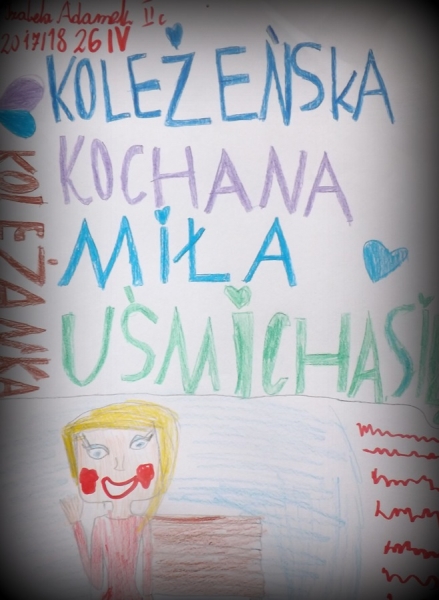 Adamek II c
2017/18 26 IV
KOLEŻEŃSKA
KOCHANA
MIŁA
UŚMICHASI
KOLEŻANKA